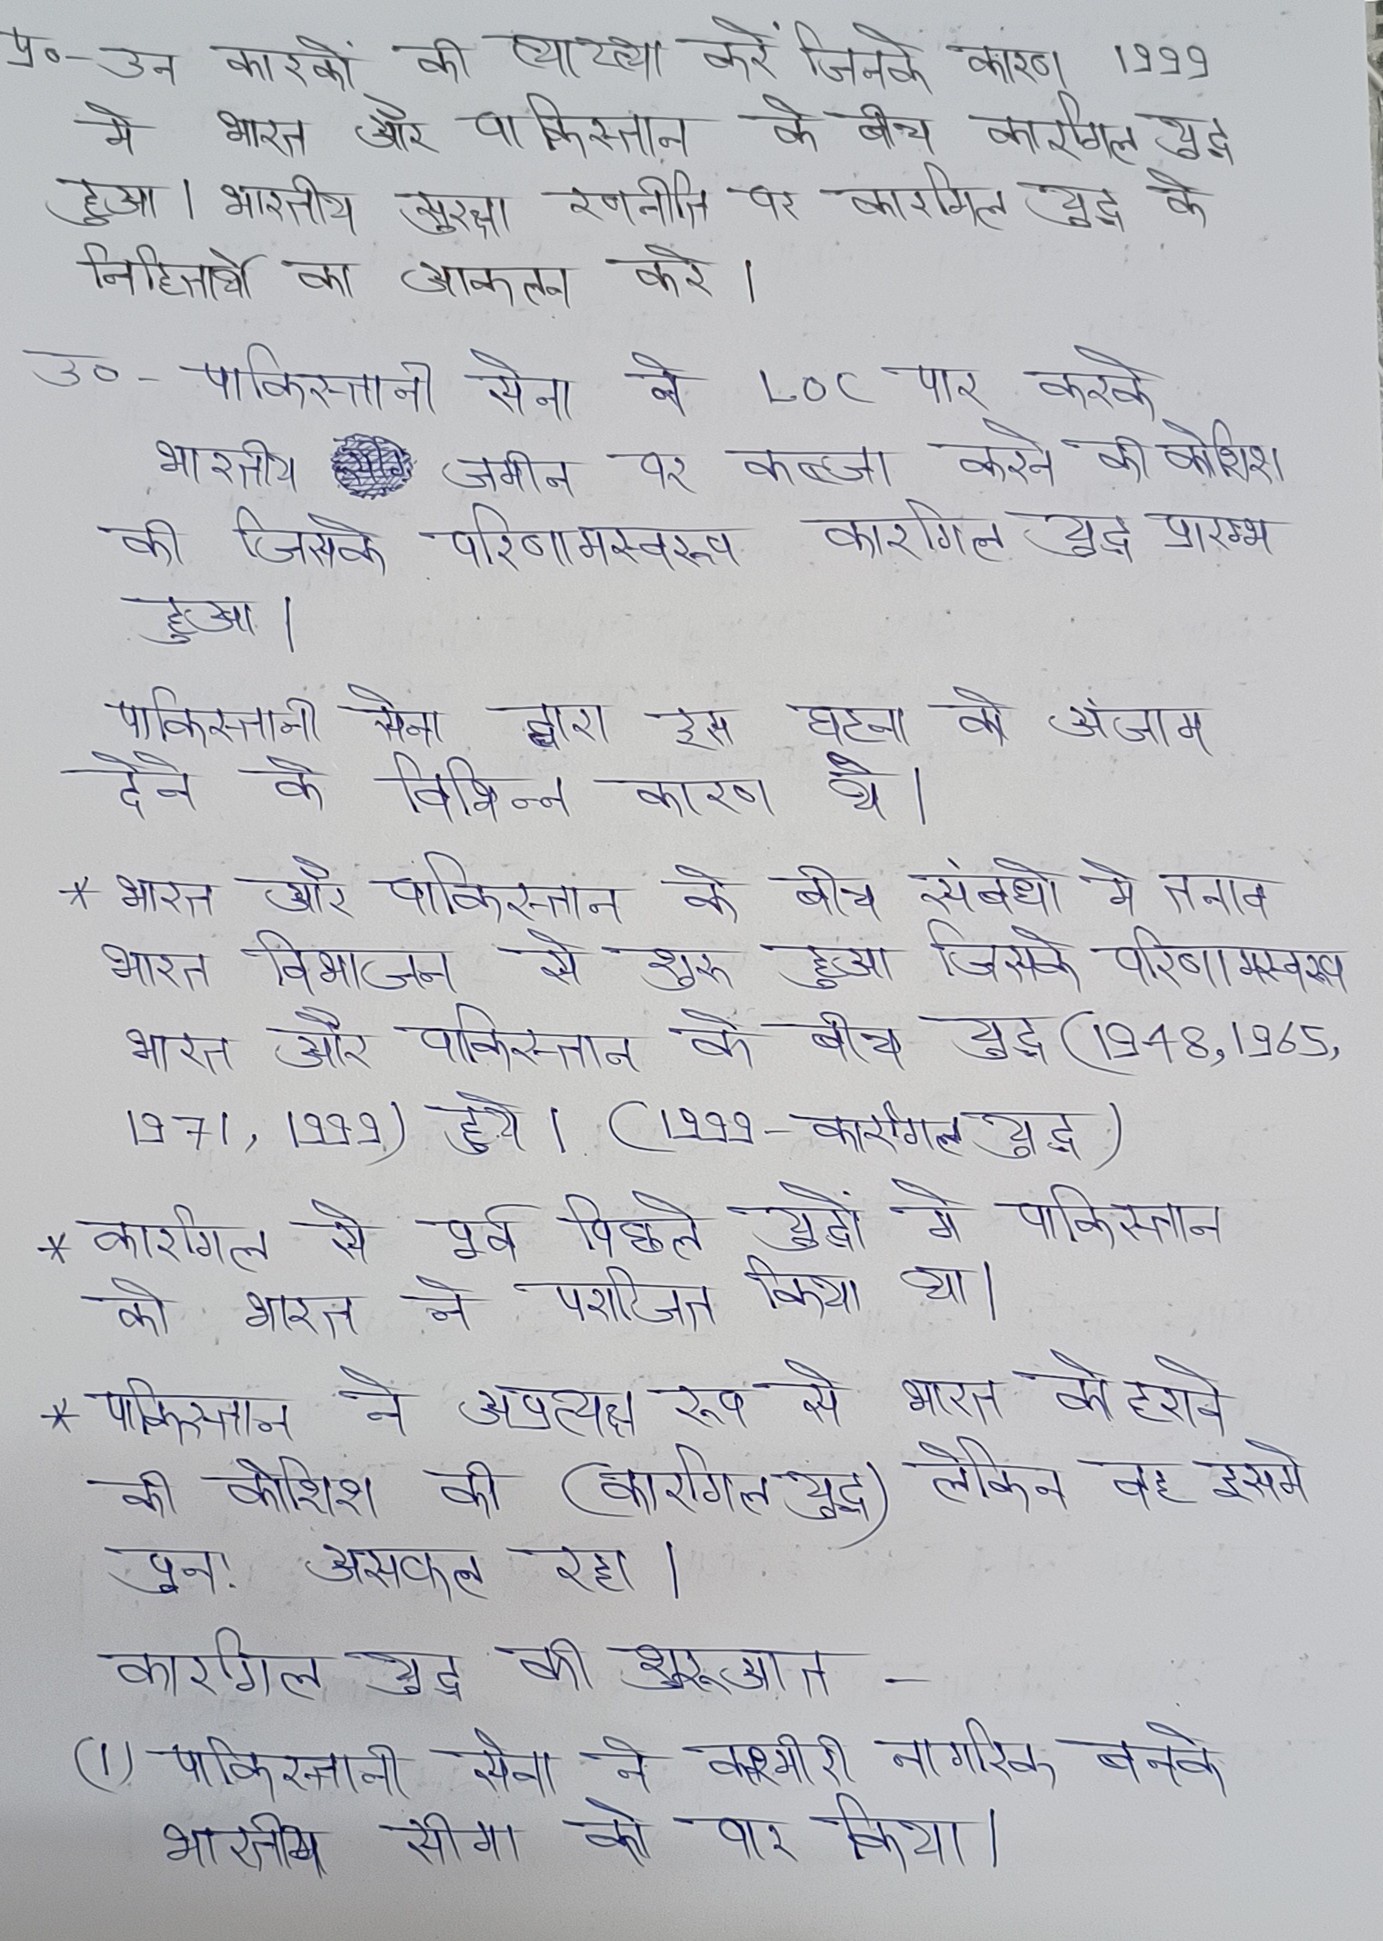 प्र०- उन कारकों की व्याख्या करें जिनके कारण 1999
मे भारत और पाकिस्तान के बीच कारगिल युद्ध
हुआ। भारतीय सुरक्षा रणनीति पर कारगिल युद्ध के
निहितार्थो का आकलन करे।
उ०- पाकिस्तानी सेना ने LOC पार करके
भारतीय जमीन पर कब्जा करने की कोशिश
की जिसके परिणामस्वरूप कारगिल युद्ध प्रारम्भ
हुआ।
पाकिस्तानी सेना द्वारा इस घटना को अंजाम
देने के विभिन्न कारण थे।
* भारत और पाकिस्तान के बीच संबंधो मे तनाव
भारत विभाजन से शुरू हुआ जिसके परिणामस्वरूप
भारत और पाकिस्तान के बीच युद्ध (1948, 1965,
1971, 1999) हुये। (1999- कारगिल युद्ध)
* कारगिल से पूर्व पिछले युद्धों मे पाकिस्तान
को भारत ने पराजित किया था।
* पाकिस्तान ने अप्रत्यक्ष रूप से भारत को हराने
की कोशिश की (कारगिल युद्ध) लेकिन वह इसमे
पुन: असफल रहा।
कारगिल युद्ध की शुरूआत -
(1) पाकिस्तानी सेना ने कश्मीरी नागरिक बनके
भारतीय सीमा को पार किया।